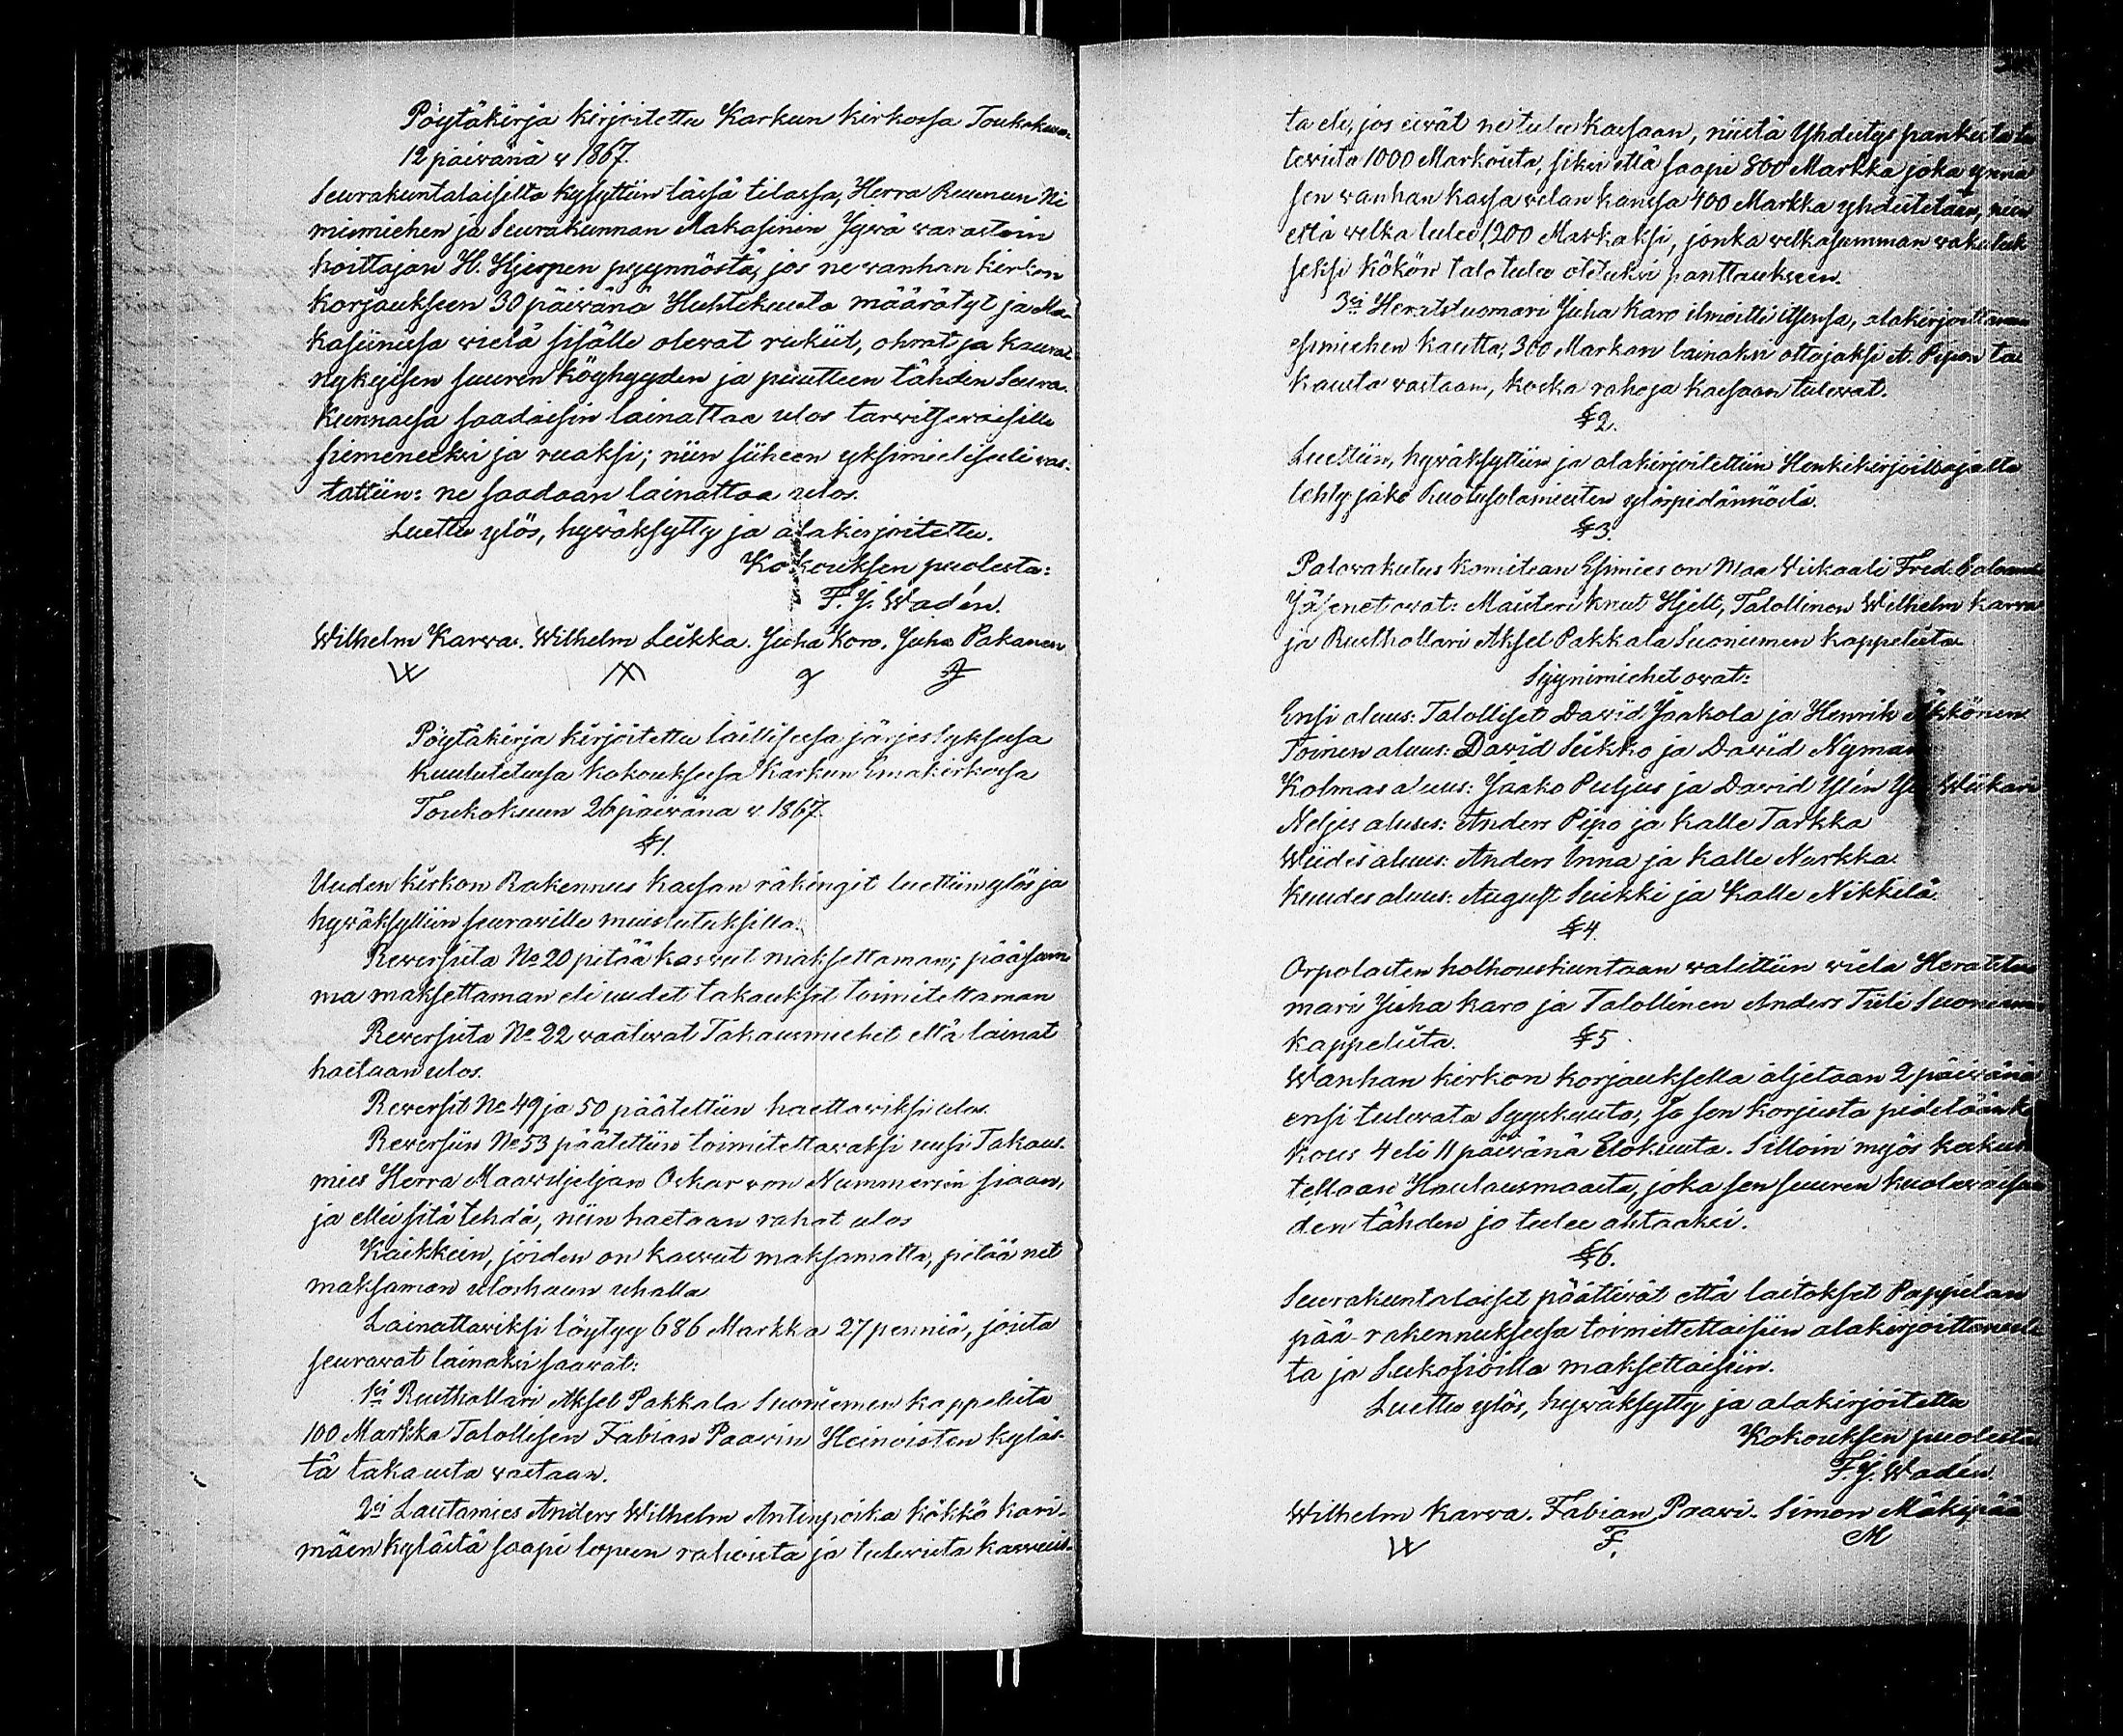 Pöytäkirja kirjoitettu Karkun kirkossa Toukokuun
12 päivänä v 1867.
Seurakuntalaisilta kysyttiin tässä tilassa, Herra Ruunun Ni
mismiehen ja Seurakunnan Makasinin Jyvä varastoin
hoittajan H. Hjerpen pyynnöstä, jos ne vanhan kirkon
korjaukseen 30 päivänä Huhtikuuta määrätyt ja Ma-
kasiinissa vielä sisälle olevat rukiit, ohrat ja kaurat
nykyisen suuren köyhyyden ja puutteen tähden Seura-
kunnassa saadaisin lainattaa ulos tarvitsevaisille
siemeneksi ja ruaksi; niin siiheen yksimielisesti vas-
tattiin: ne saadaan lainattaa ulos.
Luettu ylös, hyväksytty ja alakirjoitettu.
Kokouksen puolesta:
F. J. Wadén.
Wilhelm Karwa. Wilhelm Liikka. Juha Koro. Juha Pakanen
Pöytäkirja kirjoitettu laillisessa järjestyksessä
kuulutetussa kokouksessa Karkun Emäkirkossa
Toukokuun 26 päivänä v. 1867.
§1.
Uuden kirkon Rakennus Kassan räkingit luettiin ylös ja
hyväksyttiin seuraville muistutuksilla:
Reversista No 20 pitää kasvut maksettaman; pääsum
ma maksettaman eli uudet takaukset toimitettaman
Reversista No 22 vaativat Takausmiehet että lainat
haetaan ulos.
Reversit No 49 ja 50 päätettiin haettaviksi ulos.
Reversiin No 53 päätettiin toimitettavaksi uusi Takaus-
mies Herra Maanviljeljan Oskar von Nummersin siaan,
ja ellei sitä tehdä, niin haetaan rahat ulos
Kaikkein, joiden on kasvut maksamatta, pitää net
maksaman uloshaun uhalla
Lainattaviksi löytyy 686 Markka 27 penniä, joista
seuravat lainaksi saavat:
1si Rusthollari Aksel Pakkala Suoniemen kappelista
100 Markka Talollisen Fabian Paavin Heinoisten kyläs-
tä takausta vastaan.
2si Lautamies Anders Wilhelm Antinpoika Kökkö Kari-
mäen kylästä saapi lopun rahoista ja tulevista kasvuis-
ta eli, jos eivät ne tule kassaan, niistä Yhdistys pankista
tevista 1000 Markoista, siksi että saapi 800 Markka joka ynnä
sen vanhan kassa velan kanssa 400 Markka yhdistetään, niin
että velka tulee 1200 Markaksi, jonka velkasumman vakuuk
seksi Kökön talo tulee otetuksi panttaukseen.
3si Heratstuomari Juha Karo ilmoitti itsensä, alakirjoittavan
esimiehen kautta, 300 Markan lainaksi ottajaksi A. Pipon ta
kausta vastaan, koska rahoja kassaan tulevat.
§2.
Luettiin, hyväksyttiin ja alakirjoitettiin Henkikirjoittajalta
tehty jako Ruotusolamiesten ylöspidännöstä.
§3.
Palovakutus komitean Esimies on Maa Viskaali Fred.
Jäsenet ovat: Maisteri Knut Hjelt, Talollinen Wilhelm Karva
ja Rusthollari Aksel Pakkala Suoniemen kappelista
Syynimiehet ovat:
Ensi aluus: Talolliset David Jaakola ja Henrik
Toinen aluus: David Siikko ja David Nyman
Kolmas aluus: Jaako Puljus ja David Ylén
Neljes aluus: Anders Pipo ja Kalle Tarkka
Wiides aluus: Anders Inna ja Kalle Narkka.
Kuudes aluus: August Suikki ja Kalle Nikkilä.
§4.
Orpolasten holhouskuntaan valittiin vielä Heratstuo
mari Juha Karo ja Talollinen Anders Tiili Suoniemen
kappelista. §5.
Wanhan kirkon korjauksella aljetaan 2 päivänä
ensi tulevata Syyskuuta, ja sen korjusta pidetään ko
kous 4 eli 11 päivänä Elokuuta. Silloin myös keskus
tellaan Hautausmaasta, joka sen suuren kuolevaisuu
den tähden jo tulee ahtaaksi.
§6.
Seurakuntalaiset päättivät että laitokset Pappilan
pää-rakennuksessa toimittettaisiin alakirjoittaneel
ta ja Lukosioilla maksettaisiin.
Luettu ylös, hyväksytty ja alakirjoitettu
Kokouksen puolesta
F. J. Wadén.
Wilhelm Karva. Fabian Paavi. Simon Mäkipää
F. M